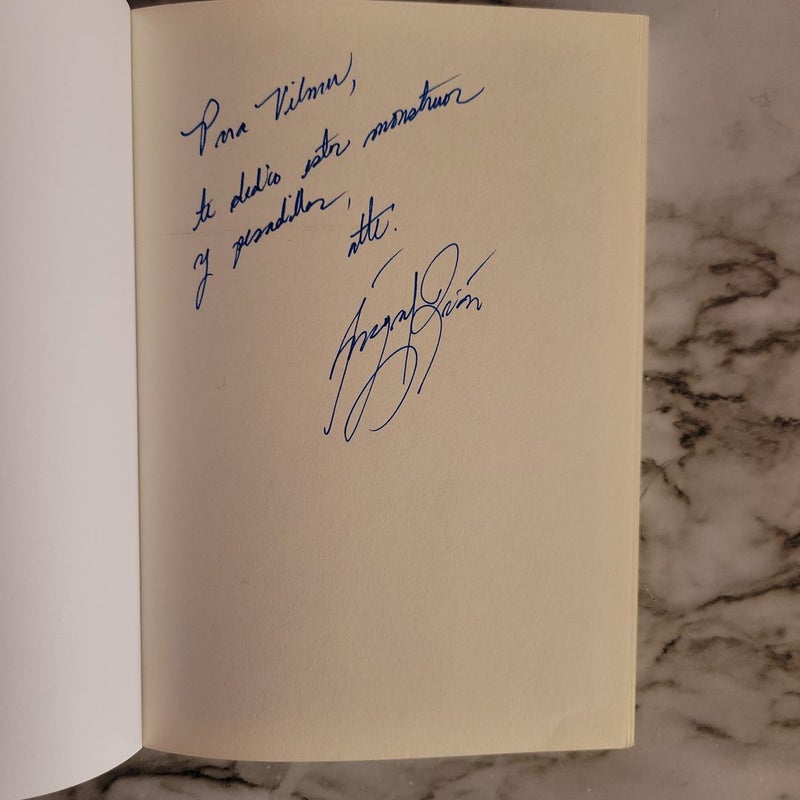 Para Vilmer,
te dedico estos monstruos
y pesadillas,
atte.